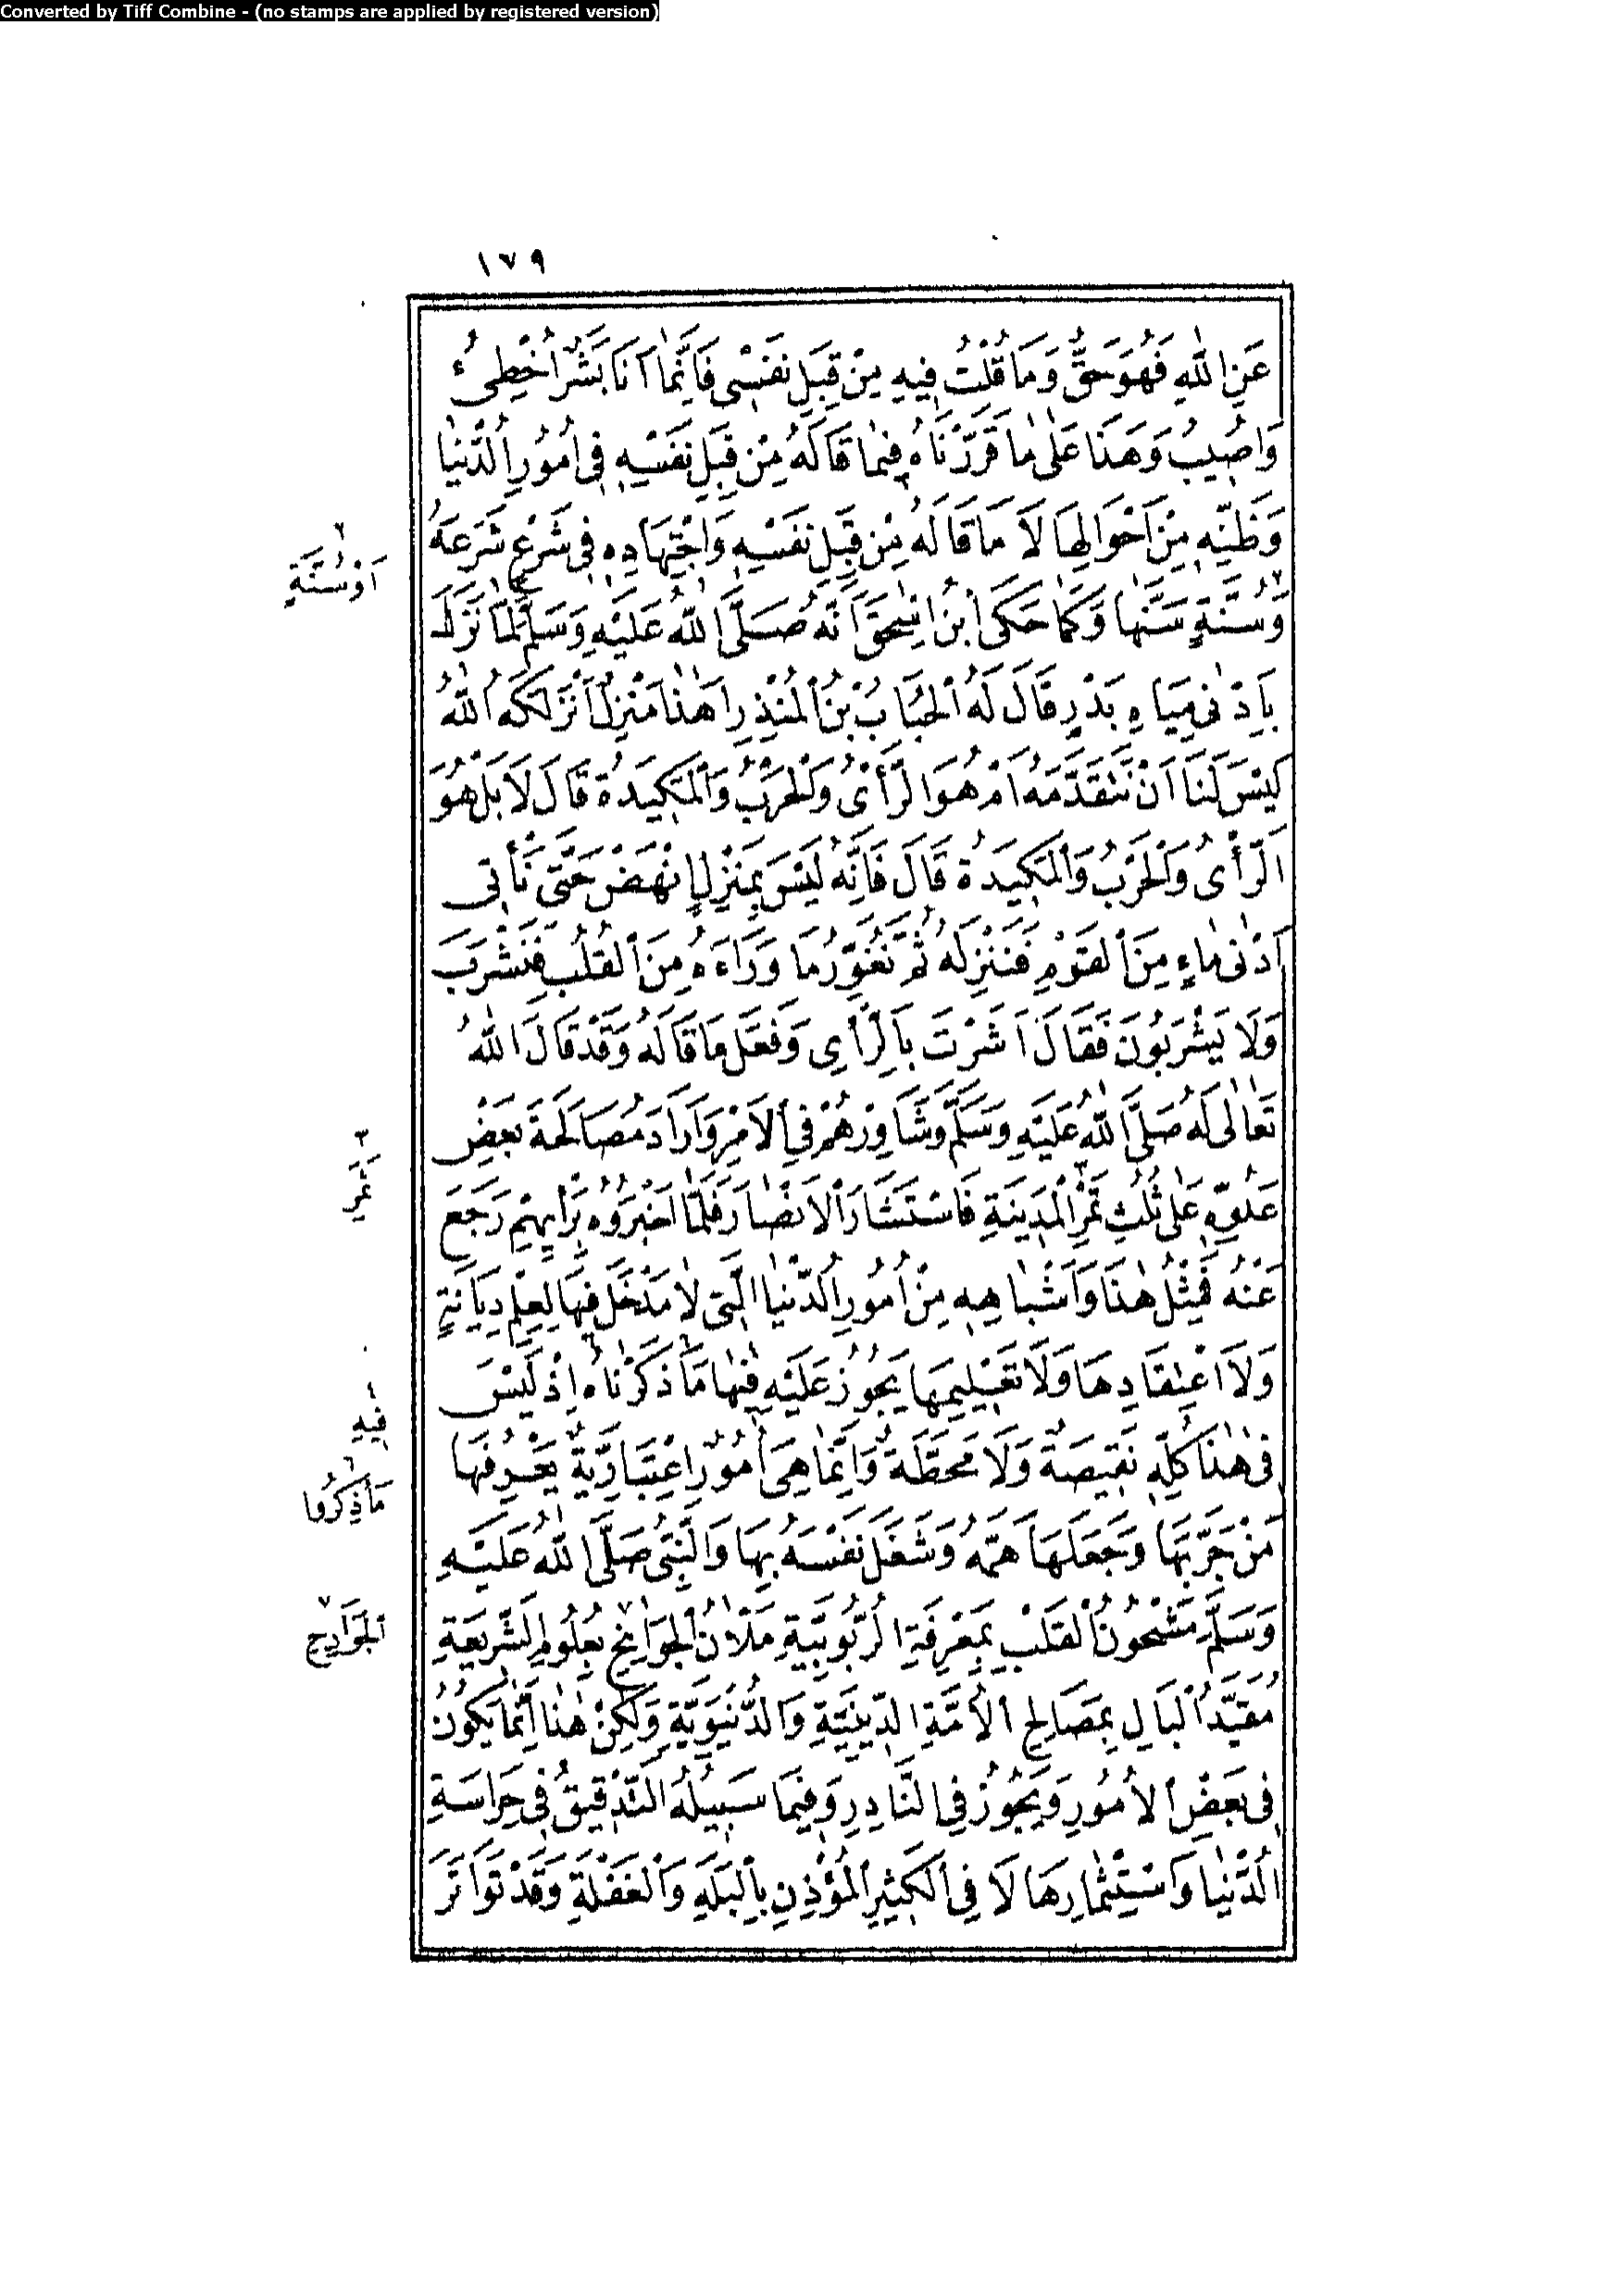 Converted by Tiff Combine - (no stamps are applied by registered version)
١٧٩
عَنِ اللهِ فَهُوَ حَقٌّ وَمَا قُلْتُ فِيهِ مِنْ قِبَلِ نَفْسِى فَاِنَّمَا اَنَا بَشَرٌ اُخْطِئُ
وَاُصِيبُ وَهَذَا عَلَى مَا قَرَّرْنَاهُ فِيمَا قَالَهُ مِنْ قِبَلِ نَفْسِهِ فِى اُمُورِ الدُّنْيَا
وَظَنِّهِ مِنْ اَحْوَالِهَا لَا مَا قَالَهُ مِنْ قِبَلِ نَفْسِهِ وَاجْتِهَادِهِ فِى شَرْعٍ شَرَعَهُ
وَسُنَّةٍ سَنَّهَا وَكَمَا حَكَى ابْنُ اِسْحٰقَ اَنَّهُ صَلَّى اللهُ عَلَيْهِ وَسَلَّمَ لَمَّا نَزَلَ
بِاَدْنٰى مِيَاهِ بَدْرٍ قَالَ لَهُ الْحُبَابُ بْنُ الْمُنْذِرِ اَهٰذَا مَنْزِلٌ اَنْزَلَكَهُ اللهُ
لَيْسَ لَنَا اَنْ نَتَقَدَّمَهُ اَمْ هُوَ الرَّأْىُ وَالْحَرْبُ وَالْمَكِيدَةُ قَالَ لَا بَلْ هُوَ
الرَّأْىُ وَالْحَرْبُ وَالْمَكِيدَةُ قَالَ فَاِنَّهُ لَيْسَ بِمَنْزِلٍ اِنْهَضْ حَتَّى نَأْتِى
اَدْنٰى مَاءٍ مِنَ الْقَوْمِ فَنَنْزِلَهُ ثُمَّ نُغَوِّرُ مَا وَرَاءَهُ مِنَ الْقُلُبِ فَنَشْرَبَ
وَلَا يَشْرَبُونَ فَقَالَ اَشَرْتَ بِالرَّأْىِ وَفَعَلَ مَا قَالَهُ وَقَدْ قَالَ اللهُ
تَعَالٰى لَهُ صَلَّى اللهُ عَلَيْهِ وَسَلَّمَ وَشَاوِرْهُمْ فِى الْاَمْرِ وَاَرَادَ مُصَالَحَةَ بَعْضِ
عَدُوِّهِ عَلٰى ثُلُثِ تَمْرِ الْمَدِينَةِ فَاسْتَشَارَ الْاَنْصَارَ فَلَمَّا اَخْبَرُوهُ بِرَأْيِهِمْ رَجَعَ
عَنْهُ فَمِثْلُ هٰذَا وَاَشْبَاهِهِ مِنْ اُمُورِ الدُّنْيَا الَّتِى لَا مَدْخَلَ فِيهَا لِعِلْمِ دِيَانَةٍ
وَلَا اعْتِقَادِهَا وَلَا تَعْلِيمِهَا يَجُوزُ عَلَيْهِ فِيهَا مَا ذَكَرْنَاهُ اِذْ لَيْسَ
فِى هٰذَا كُلِّهِ نَقِيصَةٌ وَلَا مَحَطَّةٌ وَاِنَّمَا هِىَ اُمُورٌ اعْتِيَادِيَّةٌ يَعْرِفُهَا
مَنْ جَرَّبَهَا وَجَعَلَهَا هَمَّهُ وَشَغَلَ نَفْسَهُ بِهَا وَالنَّبِىُّ صَلَّى اللهُ عَلَيْهِ
وَسَلَّمَ مَشْحُونُ الْقَلْبِ بِمَعْرِفَةِ الرُّبُوبِيَّةِ مَلْاٰنُ الْجَوَانِحِ بِعُلُومِ الشَّرِيعَةِ
مُقَيَّدُ الْبَالِ بِمَصَالِحِ الْاُمَّةِ الدِّينِيَّةِ وَالدُّنْيَوِيَّةِ وَلٰكِنْ هٰذَا اِنَّمَا يَكُونُ
فِى بَعْضِ الْاُمُورِ وَيَجُوزُ فِى النَّادِرِ وَفِيمَا سَبِيلُهُ التَّدْقِيقُ فِى حِرَاسَةِ
الدُّنْيَا وَاسْتِثْمَارِهَا لَا فِى الْكَثِيرِ الْمُؤْذِنِ بِالْبَلَهِ وَالْغَفْلَةِ وَقَدْ تَوَاتَرَ
٢
اَوْ سُنَّةٍ
٣
ثَمَرِ
١
فِيهِ
٦
مَا ذَكَرُوا
٧
الْجَوَارِحِ